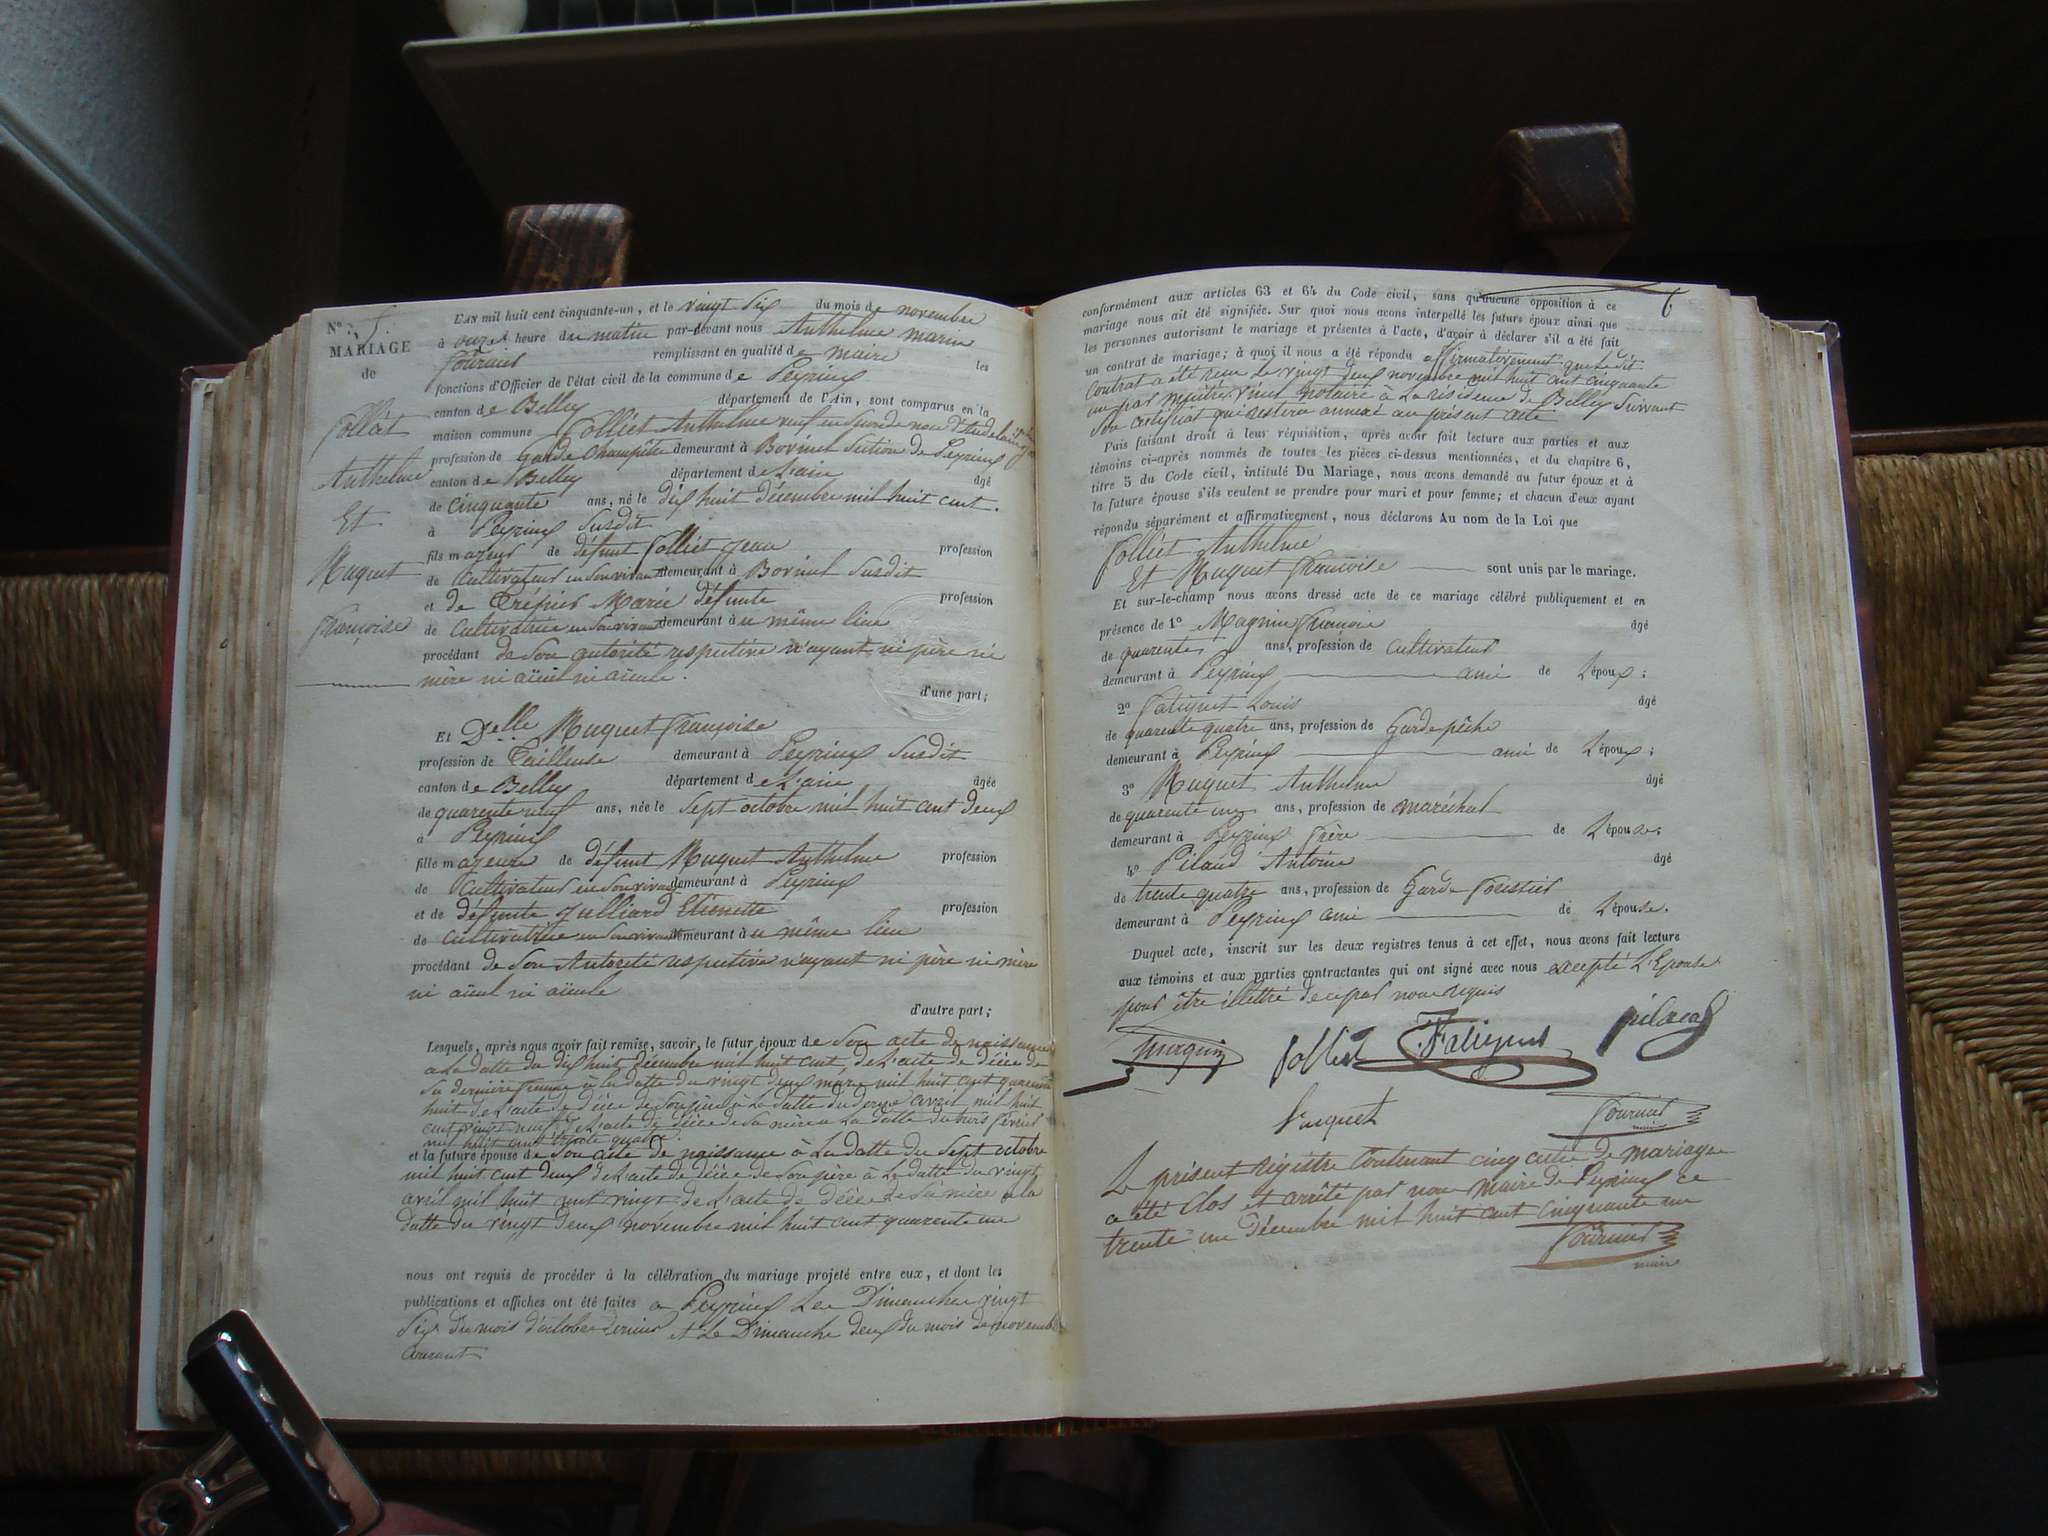 N° 5.
MARIAGE
de
Jolliet
Anthelme
Et
Muguet
Françoise
L'AN mil huit cent cinquante-un, et le vingt Six du mois de novembre
à onze heure du matin par-devant nous Anthelme marin
Fournier remplissant en qualité de maire les
fonctions d'Officier de l'état civil de la commune de Peyrieux
canton de Belley département de l'Ain, sont comparus en la
maison commune Jolliet Anthelme veuf en Seconde noce
profession de Garde Champêtre demeurant à Section de Peyrieux
canton de Belley département de L'ain âgé
de Cinquante ans, né le dix huit décembre mil huit cent.
à Peyrieux Susdit
fils majeur de défunt Jolliet Jean profession
de Cultivateur en Son vivant demeurant à Susdit
et de Trépier Marie défunte profession
de Cultivatrice en Son vivant demeurant au même lieu
procédant de Son autorité respective n'ayant ni père ni
mère ni aïeul ni aïeule.
d'une part;
Et Delle Muguet Françoise
profession de Tailleuse demeurant à Peyrieux Susdit
canton de Belley département de L'ain âgée
de quarente neuf ans, née le Sept octobre mil huit cent deux
à Peyrieux
fille majeure de défunt Muguet Anthelme profession
de Cultivateur en Son vivant demeurant à Peyrieux
et de défunte Julliard Etienette profession
de Cultivatrice en Son vivant demeurant au même lieu
procédant de Son Autorité respective n'ayant ni père ni mère
ni aïeul ni aïeule
d'autre part;
Lesquels, après nous avoir fait remise, savoir, le futur époux de Son acte de naissance
a La datte du dix huit décembre mil huit cent, de L'acte de décè de
Sa dernière femme à la datte du vingt deux mars mil huit cent quarente
huit de L'acte de décè de Son père à La datte du avril mil huit
cent vingt neuf, de L'acte de décè de Sa mère a La datte du trois février
mil huit cent trente quatre.
et la future épouse de Son acte de naissance à La datte du Sept octobre
mil huit cent deux de L'acte de décè de Son père à La datte du vingt
avril mil huit cent vingt de L'acte de décè de Sa mère a la
datte du vingt deux novembre mil huit cent quarente un
nous ont requis de procéder à la célébration du mariage projeté entre eux, et dont les
publications et affiches ont été faites a Peyrieux Les Dimanches vingt
Six du mois d'octobre dernier et Le Dimanche deux du mois de novembre
Courant
6
conformément aux articles 63 et 64 du Code civil, sans qu'aucune opposition à ce
mariage nous ait été signifiée. Sur quoi nous avons interpellé les futurs époux ainsi que
les personnes autorisant le mariage et présentes à l'acte, d'avoir à déclarer s'il a été fait
un contrat de mariage; à quoi il nous a été répondu affirmativement que Ledit
Contrat a été reçu Le vingt deux novembre mil huit cent cinquante
un par Maître notaire à La résidence de Belley Suivant
Son certificat qui restera annexé au présent acte
Puis faisant droit à leur réquisition, après avoir fait lecture aux parties et aux
témoins ci-après nommés de toutes les pièces ci-dessus mentionnées, et du chapitre 6,
titre 5 du Code civil, intitulé Du Mariage, nous avons demandé au futur époux et à
la future épouse s'ils veulent se prendre pour mari et pour femme; et chacun d'eux ayant
répondu séparément et affirmativement, nous déclarons Au nom de la Loi que
Jolliet Anthelme
Et Muguet Françoise sont unis par le mariage.
Et sur-le-champ nous avons dressé acte de ce mariage célébré publiquement et en
présence de 1° Magnin François âgé
de quarente ans, profession de Cultivateur
demeurant à Peyrieux ami de L'époux;
2° Falignet Louis âgé
de quarente quatre ans, profession de Garde pêche
demeurant à Peyrieux ami de L'époux;
3° Muguet Anthelme âgé
de quarente un ans, profession de maréchal
demeurant à Peyrieux Frère de L'épouse;
4° Pilaud Antoine âgé
de trente quatre ans, profession de Garde Forestier
demeurant à Peyrieux ami de L'épouse.
Duquel acte, inscrit sur les deux registres tenus à cet effet, nous avons fait lecture
aux témoins et aux parties contractantes qui ont signé avec nous excepté L'Epouse
pour être illettré de ce par nous requis
Magnin Jolliet Falignet pilaud
Muguet Fournier
Le présent registre Contenant cinq actes de mariage
a été Clos et arrêté par nous Maire de Peyrieux ce
trente un Décembre mil huit cent Cinquante un
Fournier
maire